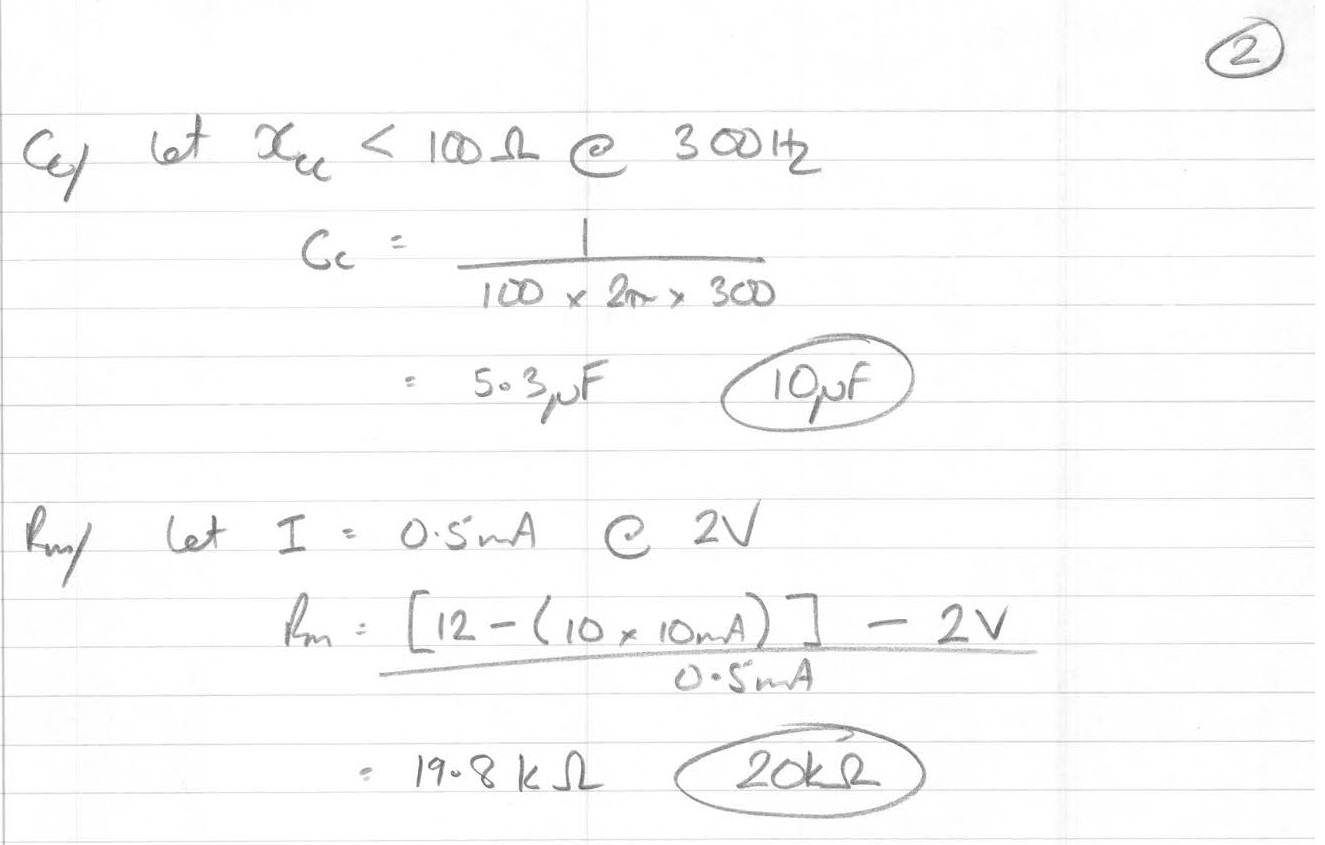 2
Cc/ let Xcc < 100Ω @ 300Hz
Cc = 1
100 x 2π x 300
= 5.3μF 10μF
Rm/ let I = 0.5mA @ 2V
Rm = [12 - (10 x 10mA)] - 2V
0.5mA
= 19.8kΩ 20kΩ